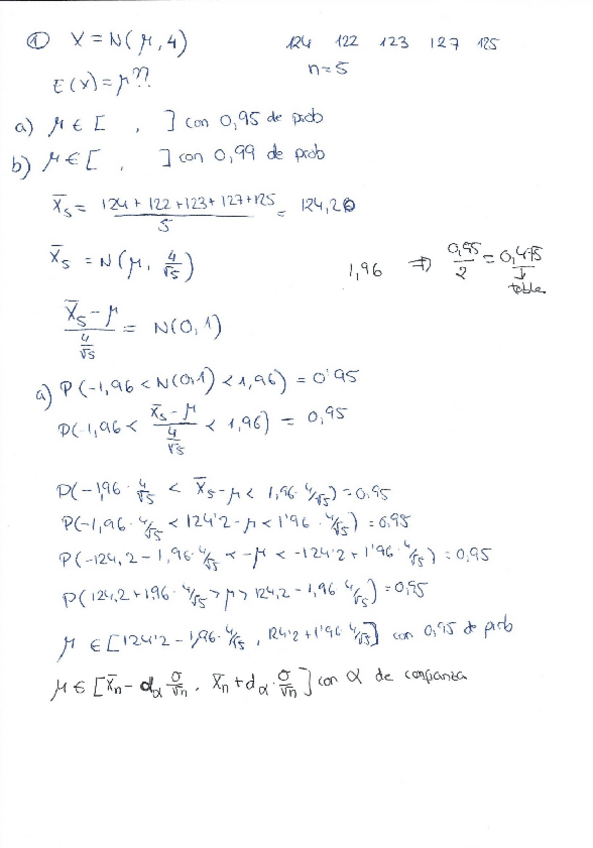 ① X = N(μ, 4) 124 122 123 127 125
E(X) = μ?? n=5
a) μ ∈ [ , ] con 0,95 de prob
b) μ ∈ [ , ] con 0,99 de prob
X̄₅ = (124 + 122 + 123 + 127 + 125)/5 = 124,20
X̄₅ = N(μ, 4/√5) 1,96 ⇒ 0,95/2 = 0,475
↓
tabla
(X̄₅ - μ)/(4/√5) = N(0,1)
a) P(-1,96 < N(0,1) < 1,96) = 0'95
P(-1,96 < (X̄₅ - μ)/(4/√5) < 1,96) = 0,95
P(-1,96 · 4/√5 < X̄₅ - μ < 1,96 · 4/√5) = 0,95
P(-1,96 · 4/√5 < 124'2 - μ < 1'96 · 4/√5) = 0,95
P(-124,2 - 1,96 · 4/√5 < -μ < -124'2 + 1'96 · 4/√5) = 0,95
P(124,2 + 1,96 · 4/√5 > μ > 124,2 - 1,96 · 4/√5) = 0,95
μ ∈ [124'2 - 1,96 · 4/√5 , 124'2 + 1'96 · 4/√5] con 0,95 de prob
μ ∈ [X̄n - dα σ/√n , X̄n + dα · σ/√n] con α de confianza